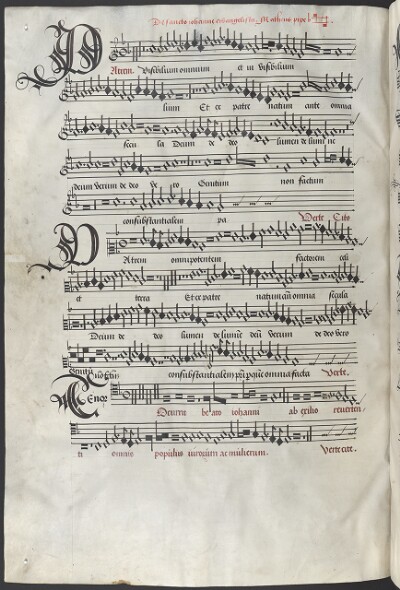 De sancto iohanne evangelista Matheus pipe
Patrem. Visibilium omnium et in visibilium
lium Et ex patre natum ante omnia
secu la Deum de deo lumen de lumi ne
deum verum de deo ve ro Genitum non factum
consubstantialem pa Verte Cito
Patrem omnipotentem factorem celi
et terra Et ex patre natum omnia secula
Deum de deo lumen de lumine deum verum de deo vero
consubstantialem omnia facta Verte.
Tenor Occurrit beato iohanni ab exilio reverten
ti omnis populus virorum ac mulierum. Verte cite.